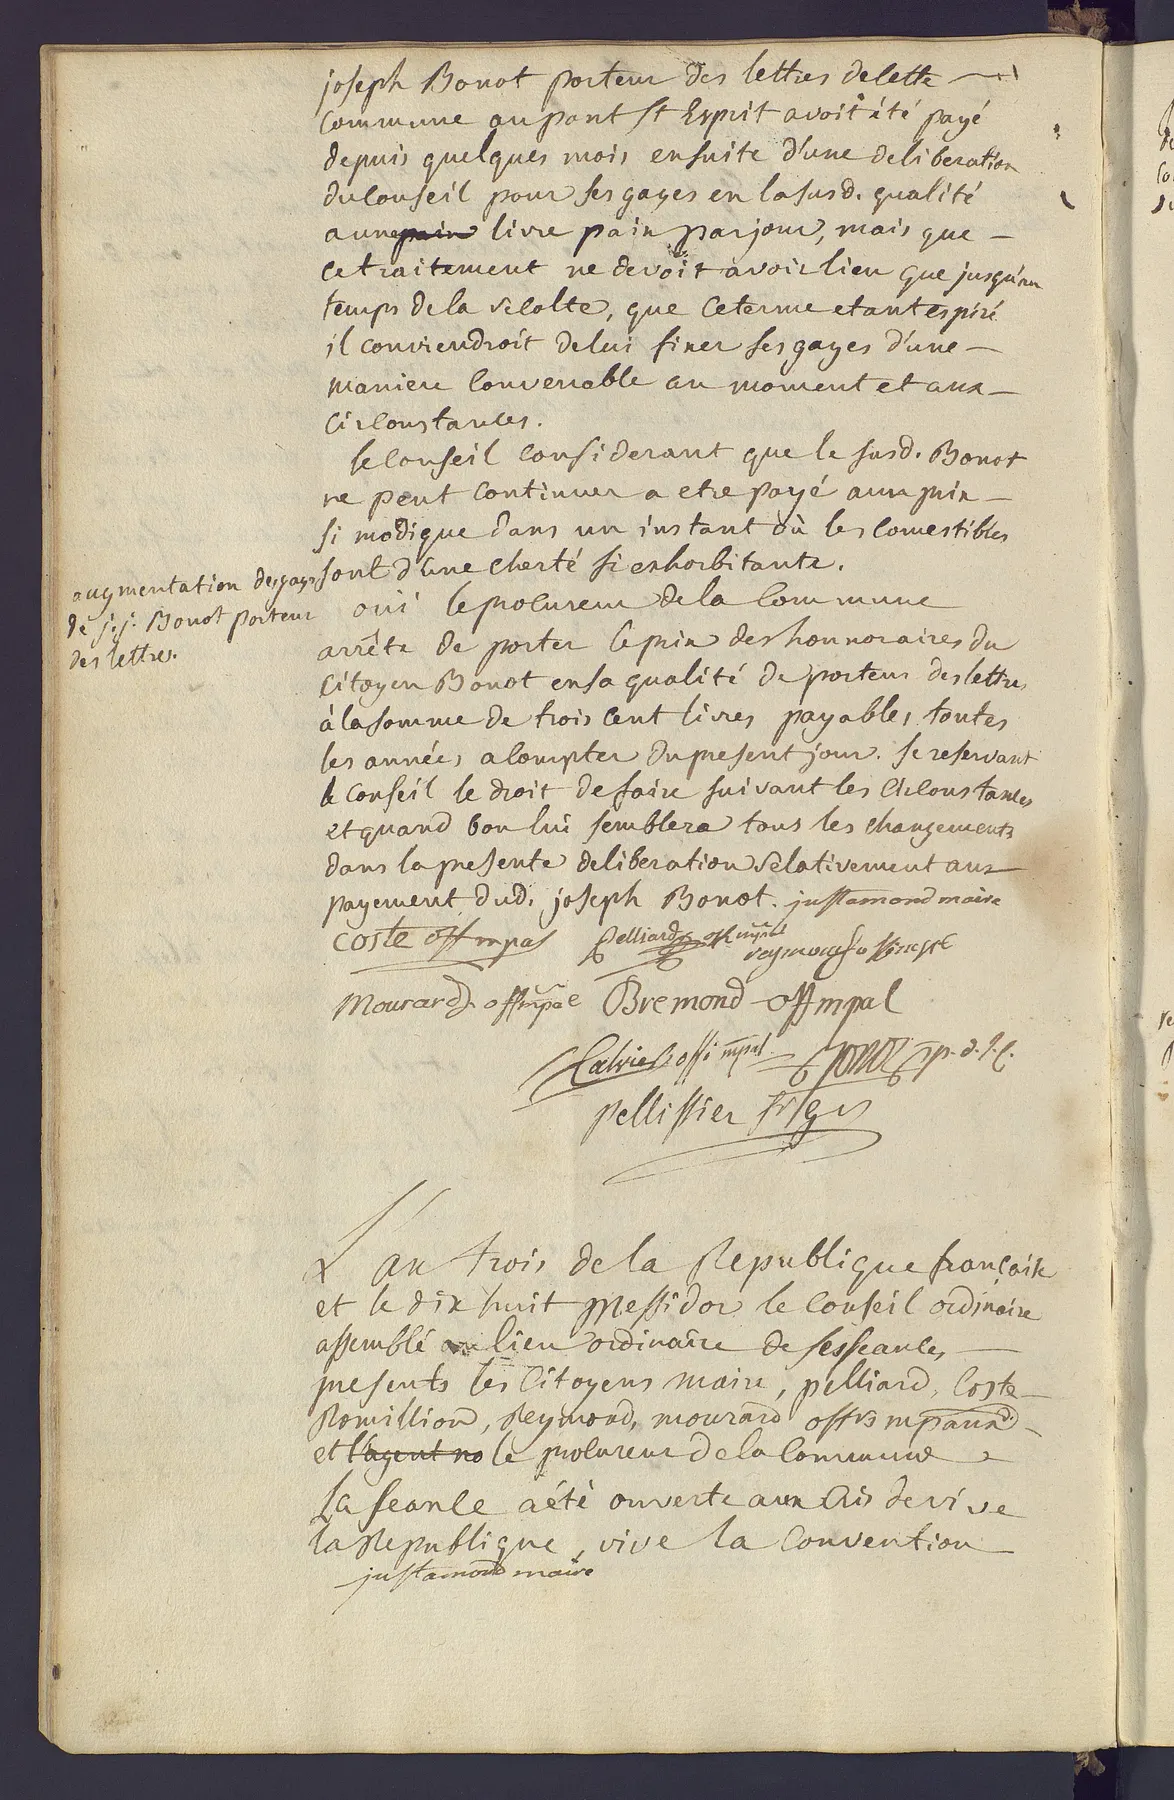 joseph Bonot porteur des lettres de cette
commune au pont st Esprit avoit été payé
depuis quelques mois ensuite d'une deliberation
du Conseil pour ses gages en la susd. qualité
a une pain livre pain par jour, mais que
ce traitement ne devoit avoir lieu que jusqu'au
temps de la recolte, que ce terme etant expiré
il conviendroit de lui fixer ses gages d'une
maniere convenable au moment et aux
circonstances.
le Conseil considerant que le susd. Bonot
ne peut continuer a etre payé a un prix
si modique dans un instant où les comestibles
sont d'une cherté si exhorbitante.
augmentation des gages
de j.j. Bonot porteur
des lettres.
oui le procureur de la Commune
arrête de porter le prix des honnoraires du
Citoyen Bonot en sa qualité de porteur des lettres
à la somme de trois cent livres payables toutes
les années a compter du present jour. se reservant
le Conseil le droit de faire suivant les circonstances
et quand bon lui semblera tous les changements
dans la presente deliberation relativement aux
payement dud. joseph Bonot. justamond maire
Coste off mpal pelliard off mpal
reymond off mpal
Mourard off mpal Bremond off mpal
offi mpal p.d.l.C.
pellissier
L'an trois de la Republique françoise
et le dix huit Messidor le Conseil ordinaire
assemblé au lieu ordinaire de ses seances
presents les Citoyens maire, pelliard, Coste
Romillion, Reymond, mourard offrs mpaux
et l'agent na le procureur de la Commune
La seance a été ouverte aux cris de vive
la Republique, vive la Convention
justamond maire